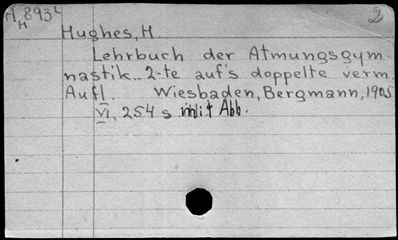 H893L 2
H
Hughes, H.
Lehrbuch der Atmungsgym
nastik... 2-te auf's doppelte verm.
Aufl. Wiesbaden, Bergmann, 1905
VI, 254 s. mit Abb.